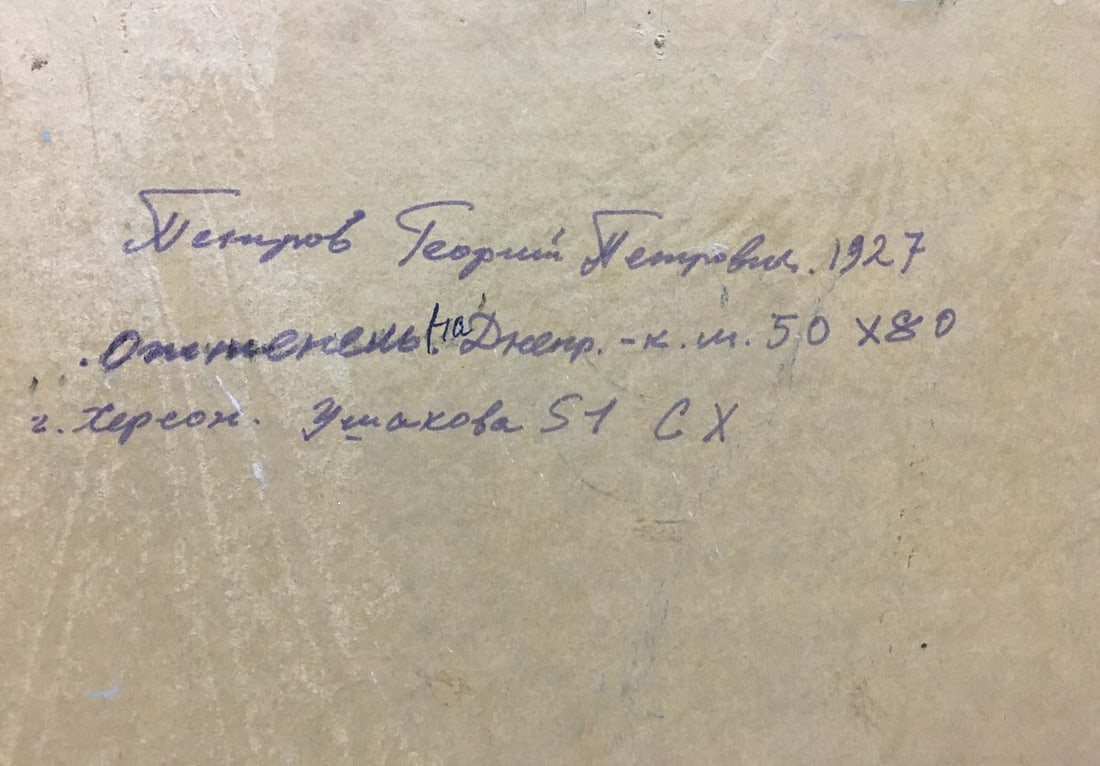 Петров Георгий Петрович. 1927
. Оттепель. на Днепр. - к. м. 50 х 80
г. Херсон. Ушакова 51 СХ